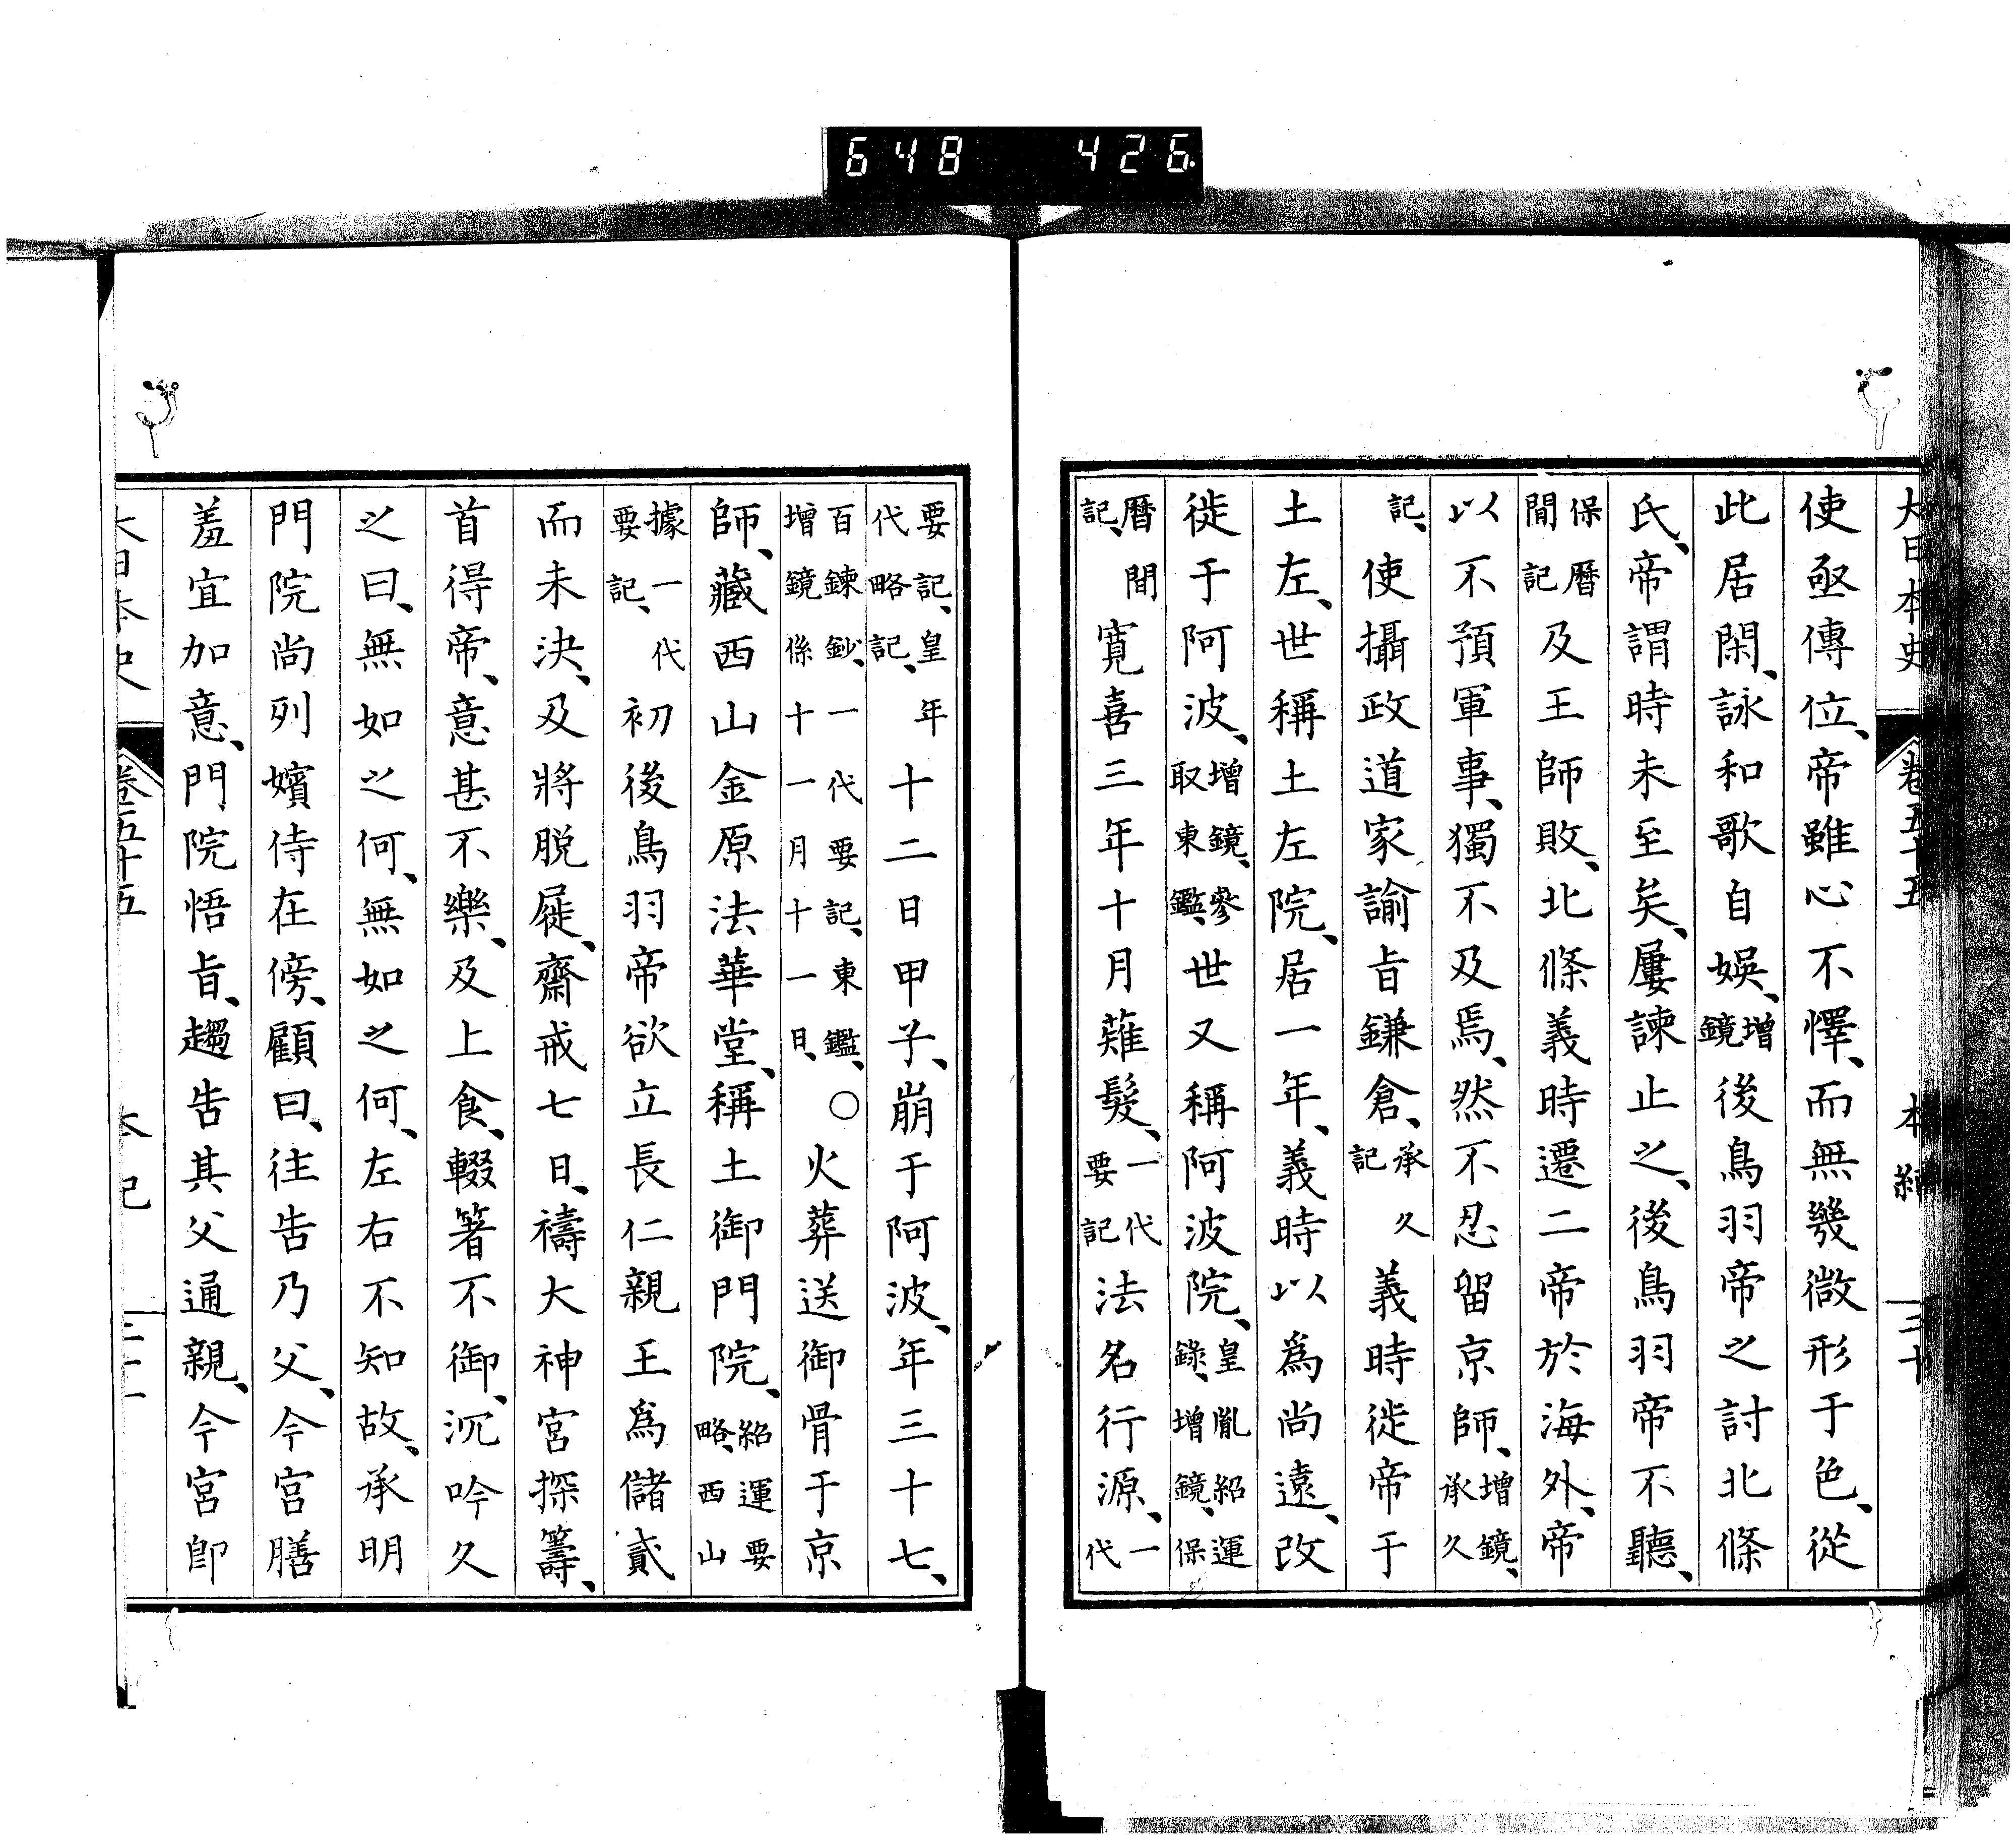 大日本史 卷五十五 本紀 三十
使亟傳位、帝雖心不懌、而無幾微形于色、從
此居閑、詠和歌自娛、增鏡後鳥羽帝之討北條
氏、帝謂時未至矣、屢諫止之、後鳥羽帝不聽、
保曆間記及王師敗、北條義時遷二帝於海外、帝
以不預軍事、獨不及焉、然不忍留京師、增鏡、承久
記、使攝政道家諭旨鎌倉、承久記義時徙帝于
土左、世稱土左院、居一年、義時以爲尚遠、改
徙于阿波、增鏡、參取東鑑、世又稱阿波院、皇胤紹運錄、增鏡、保
曆間記、寬喜三年十月薙髮、一代要記法名行源、一代
要記、皇年代略記、十二日甲子、崩于阿波、年三十七、
百鍊鈔、一代要記、東鑑、○增鏡係十一月十一日、火葬送御骨于京
師、藏西山金原法華堂、稱土御門院、紹運要略、西山
據一代要記、初後鳥羽帝欲立長仁親王爲儲貳
而未決、及將脱屣、齋戒七日、禱大神宮探籌、
首得帝、意甚不樂、及上食、輟箸不御、沉吟久
之曰、無如之何、無如之何、左右不知故、承明
門院尚列嬪侍在傍、顧曰、往告乃父、今宮膳
羞宜加意、門院悟旨、趨告其父通親、今宮卽
大日本史 卷五十五 本紀